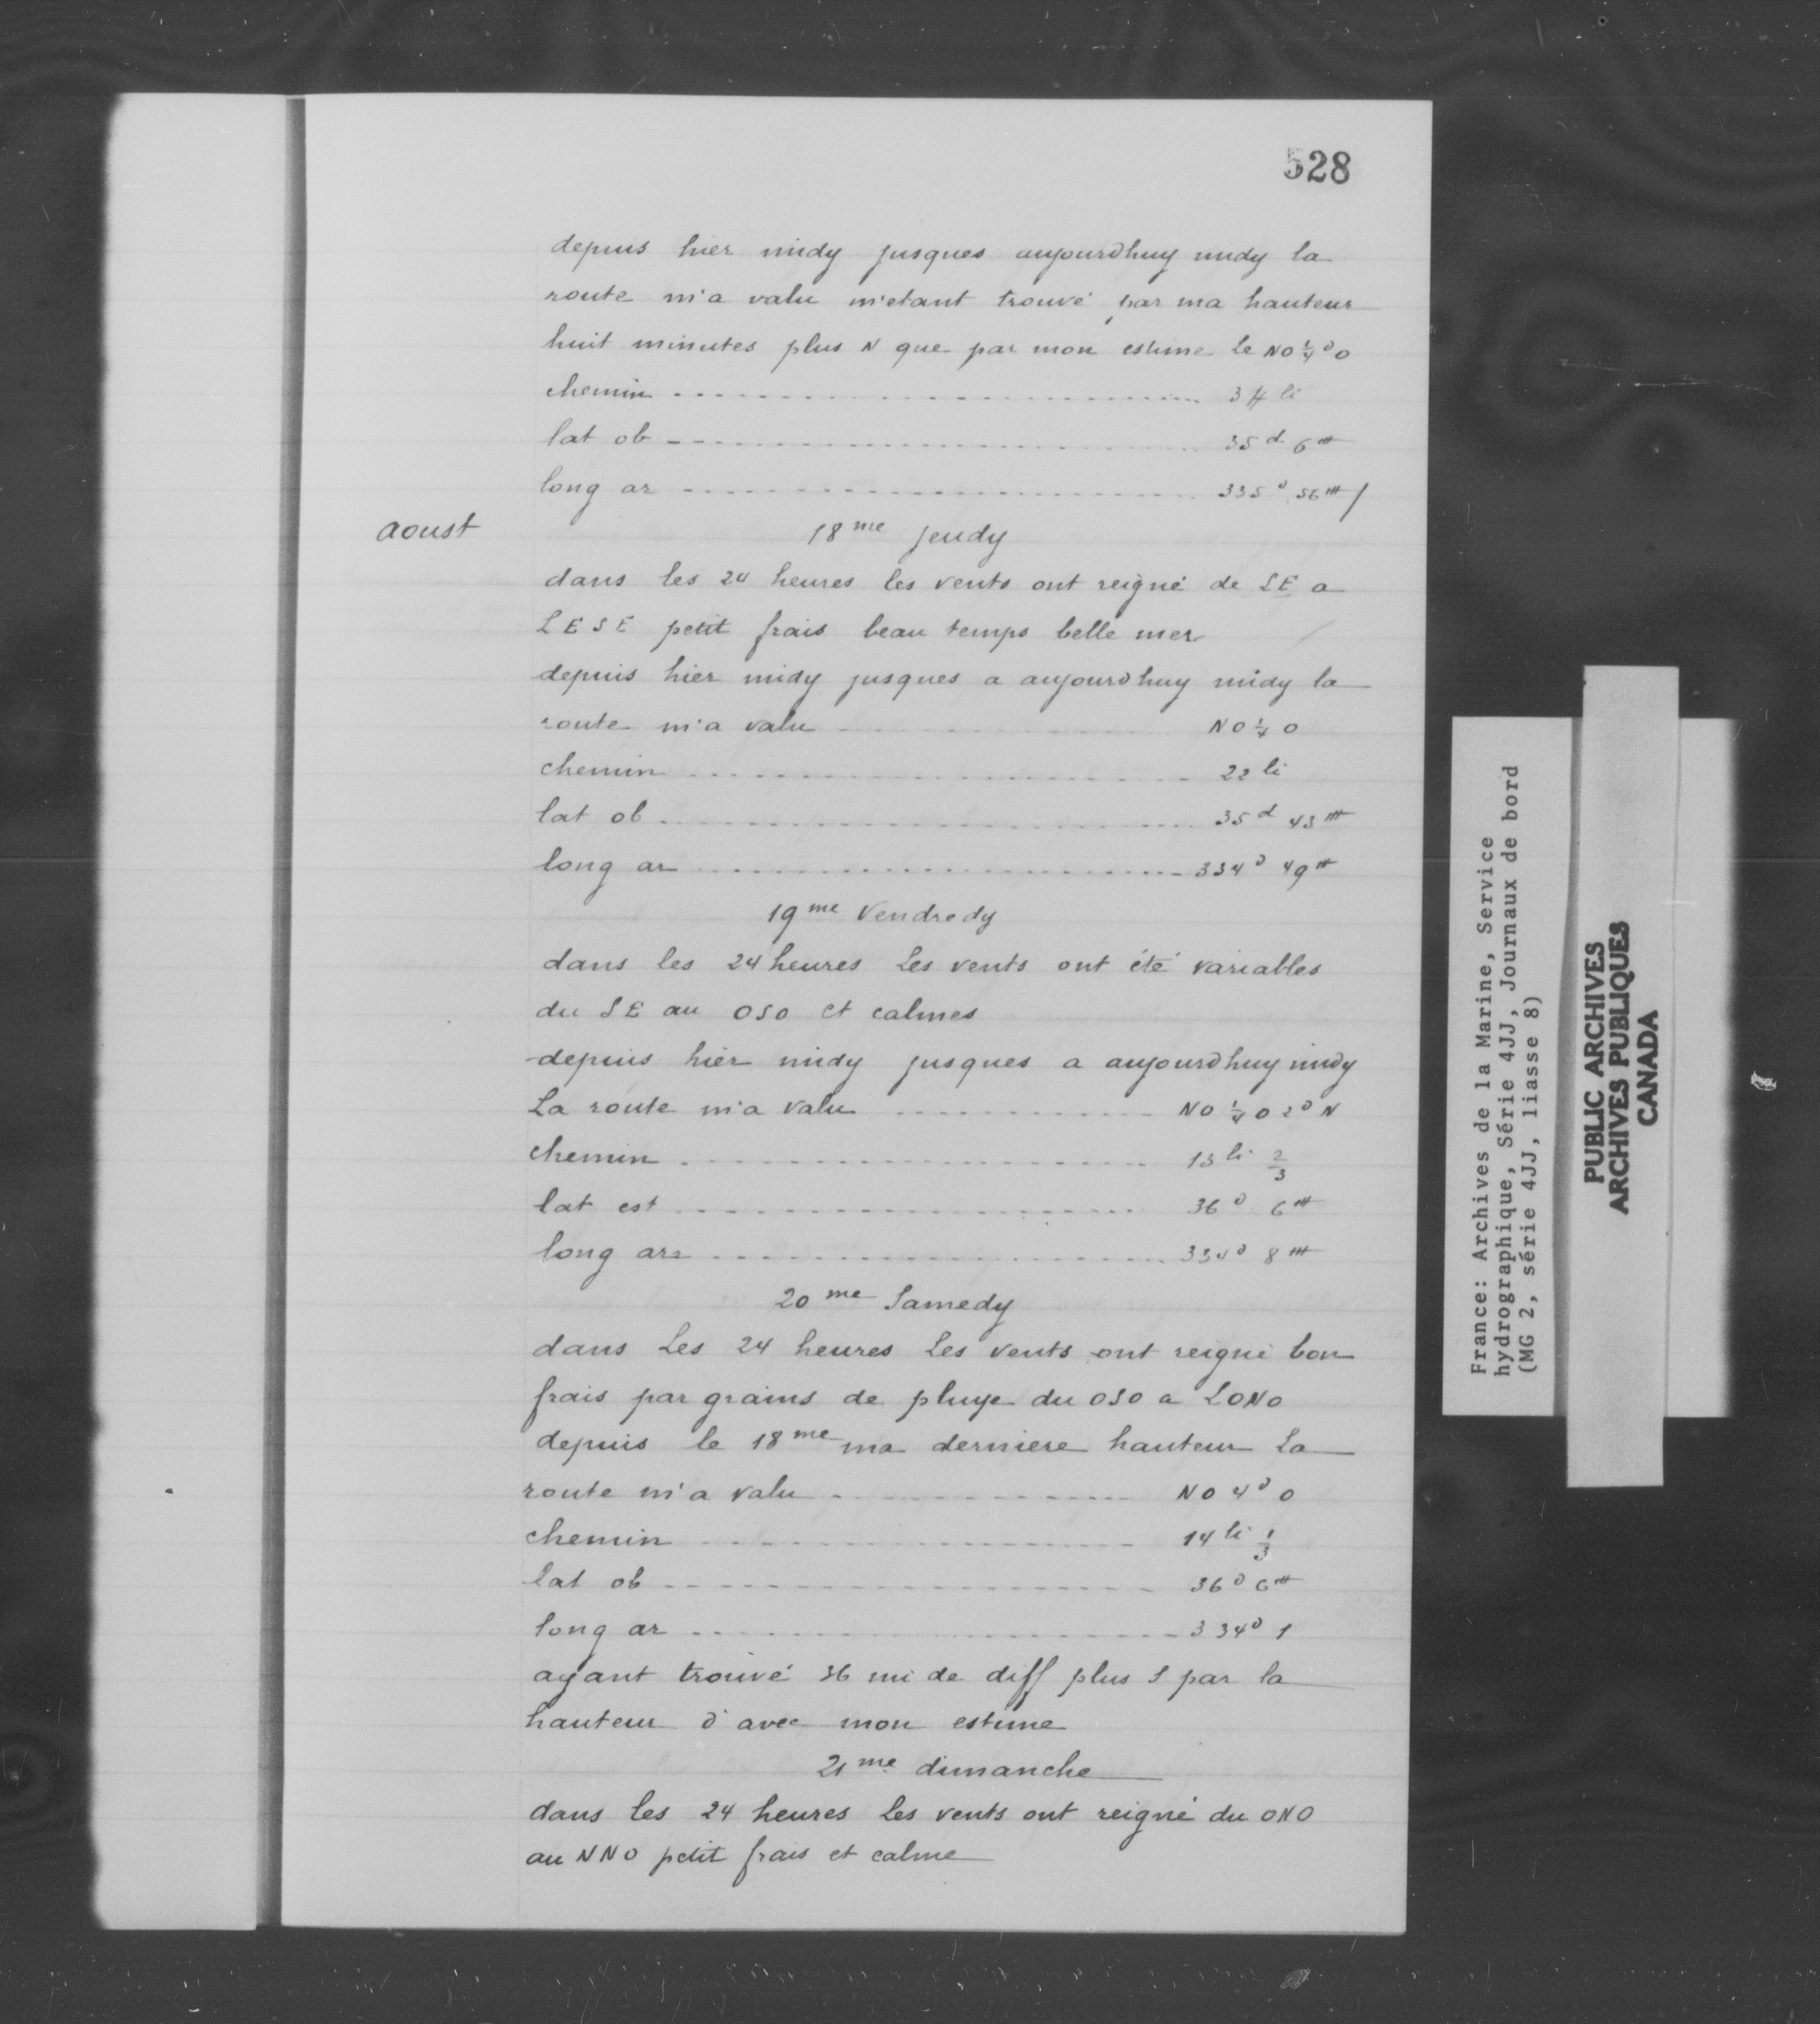 528
depuis hier midy jusques aujourdhuy midy la
route m'a valu m'etant trouvé par ma hauteur
huit minutes plus N que par mon estime le NO ¼ d O
chemin 34 li
lat ob 35 d 6 m
long ar 335 d 56 m
aoust
18 me jeudy
dans les 24 heures les vents ont reigné de SE a
LESE petit frais beau temps belle mer
depuis hier midy jusques a aujourdhuy midy la
route m'a valu NO ¼ O
chemin 22 li
lat ob 35 d 43 m
long ar 334 d 49 m
19 me Vendredy
dans les 24 heures les vents ont été variables
du SE au OSO et calmes
depuis hier midy jusques a aujourdhuy midy
La route m'a valu NO ¼ O 2 d N
chemin 13 li 2/3
lat est 36 d 6 m
long ar 334 d 8 m
20 me Samedy
dans les 24 heures les vents ont reigné bon
frais par grains de pluye du OSO a LONO
depuis le 18 me ma derniere hauteur La
route m'a valu NO 4 d O
chemin 14 li 1/3
lat ob 36 d 6 m
long ar 334 d 1
ayant trouvé 36 mi de diff plus S par la
hauteur d'avec mon estime
21 me dimanche
dans les 24 heures les vents ont reigné du ONO
au NNO petit frais et calme
France: Archives de la Marine, Service
hydrographique, Série 4JJ, Journaux de bord
(MG 2, série 4JJ, liasse 8)
PUBLIC ARCHIVES
ARCHIVES PUBLIQUES
CANADA